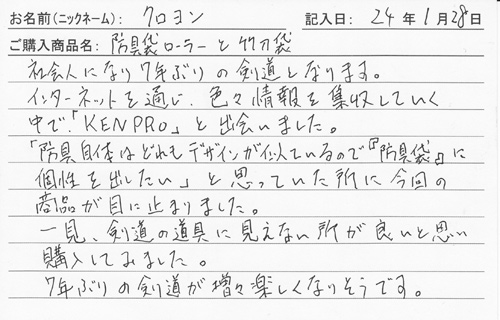 お名前(ニックネーム): クロヨン 記入日: 24年1月28日
ご購入商品名: 防具袋ローラーと竹刀袋
社会人になり7年ぶりの剣道となります。
インターネットを通じ、色々情報を集収していく
中で、「KENPRO」と出会いました。
「防具自体はどれもデザインが似ているので『防具袋』に
個性を出したい」と思っていた所に今回の
商品が目に止まりました。
一見、剣道の道具に見えない所が良いと思い
購入してみました。
7年ぶりの剣道が増々楽しくなりそうです。